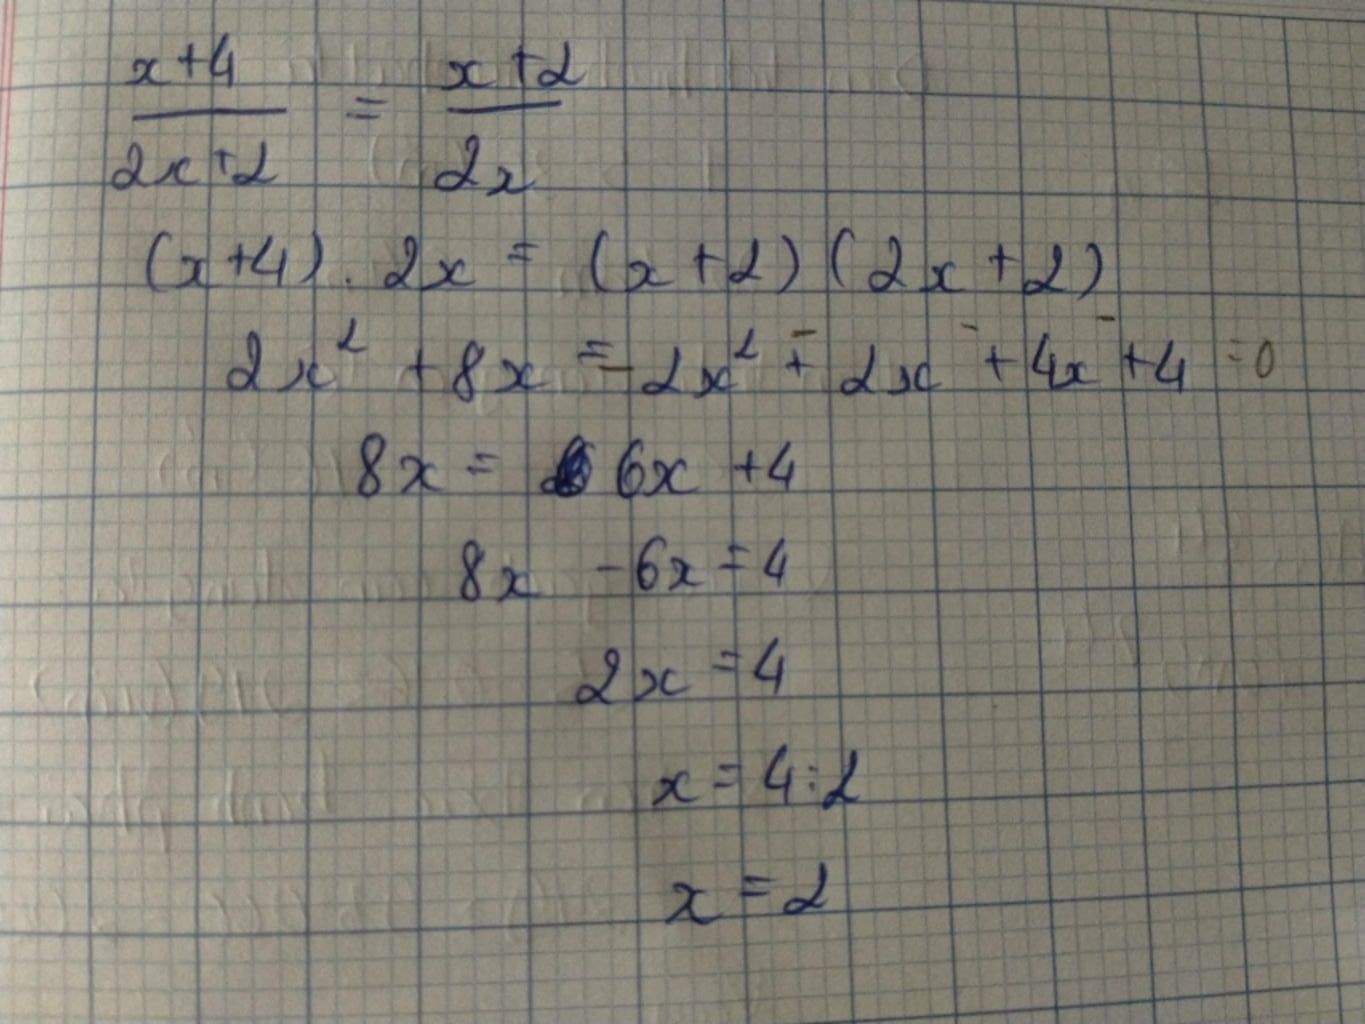 x+4 / 2x+2 = x+2 / 2x
(x+4) . 2x = (x+2) (2x+2)
2x² + 8x = - 2x² + - 2x - + 4x - + 4 = 0
8x = 6x + 4
8x - 6x = 4
2x = 4
x = 4:2
x = 2